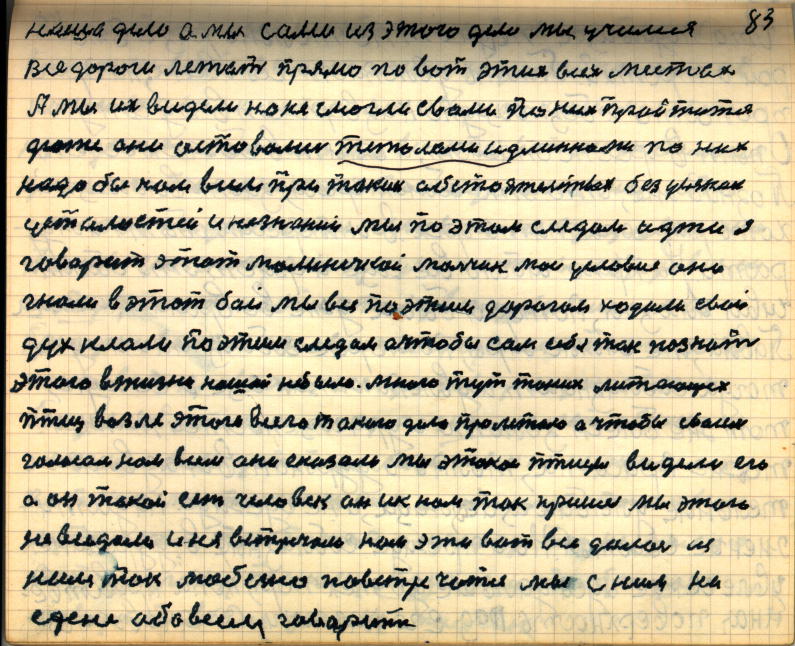 83
наша дело а мы сами из этого дело мы училися
все дороги лежать прямо по вот этих всех местах
А мы их видели но не смогли свами по них пройтитя
даже они астовалис тежолами и длинноми по них
надо бы нам всем при таких абстоятелствах без усяких
усталостей и незнаний мы по этом следам идти я
говарит этот малинечкой малчик мое условие они
гнали в этот бой мы все по этим дорогам ходили свой
дух клали по этим следам а чтобы сам себя так познать
этого в жизни нашой небыло. много тут таких литающех
птиц возле этого всего такого дела пролетало а чтобы своим
голосам нам всем они сказали мы этокой птицы видели его
а он такой ест человек он ик нам так пришел мы этого
невидали и не встречали нам эти вот все далои
ним так любезно повстречатя мы с ним на
едене обо всем говарить